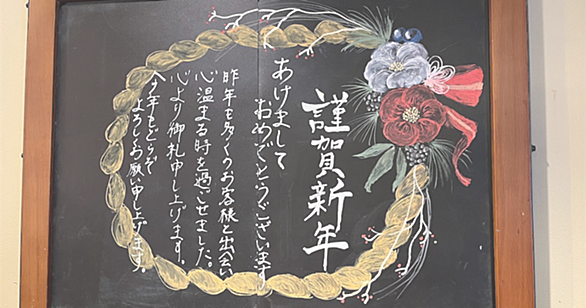 謹賀新年
あけまして
おめでとうございます
昨年も多くのお客様と出会い
心温まる時を過ごせました。
心より御礼申し上げます。
今年もどうぞ
よろしくお願い申し上げます。